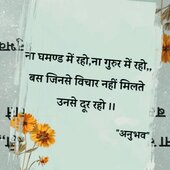 ना घमण्ड में रहो,ना गुरुर में रहो,,
बस जिनसे विचार नहीं मिलते
उनसे दूर रहो ।।
"अनुभव"